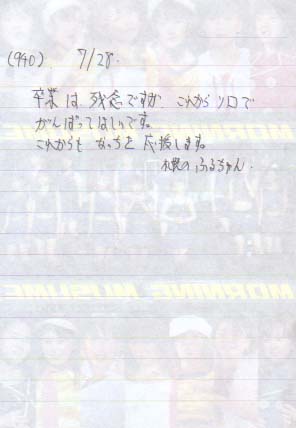 (940) 7/28.
卒業は残念ですが これからソロで
がんばってほしいです。
これからも なっちを 応援します。
札幌の ふるちゃん.
MORNING MUSUME
MORNING MUSUME